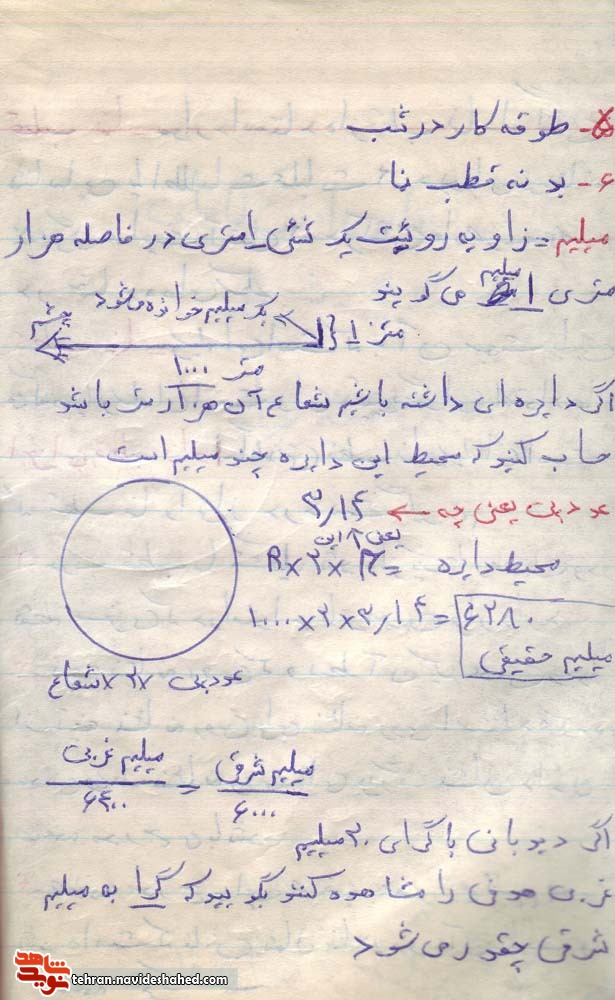 ۵- طوقه کار در شب
۶- بدنه قطب نما
میلیم = زاویه روئیت یک شئی ۱ متری در فاصله هزار
متری ۱ میلیم می گویند
یک میلیم خوانده میشود
۱ متر
۱۰۰۰ متر
اگر دایره ای داشته باشیم شعاع آن هزار متر باشد
حساب کنید که محیط این دایره چند میلیم است
عدد پی یعنی چه ← ۳٫۱۴
یعنی این
محیط دایره = R × ۲ × π
۱۰۰۰ × ۲ × ۳٫۱۴ = ۶۲۸۰
میلیم حقیقی
عدد پی × ۲ × شعاع
میلیم شرقی / ۶۰۰۰ = میلیم غربی / ۶۴۰۰
اگر دیدبانی با گرای ۲۰ میلیم
غربی هدفی را مشاهده کند بگویید که گرا به میلیم
شرقی چقدر می شود
شاهد
نوید
tehran.navideshahed.com